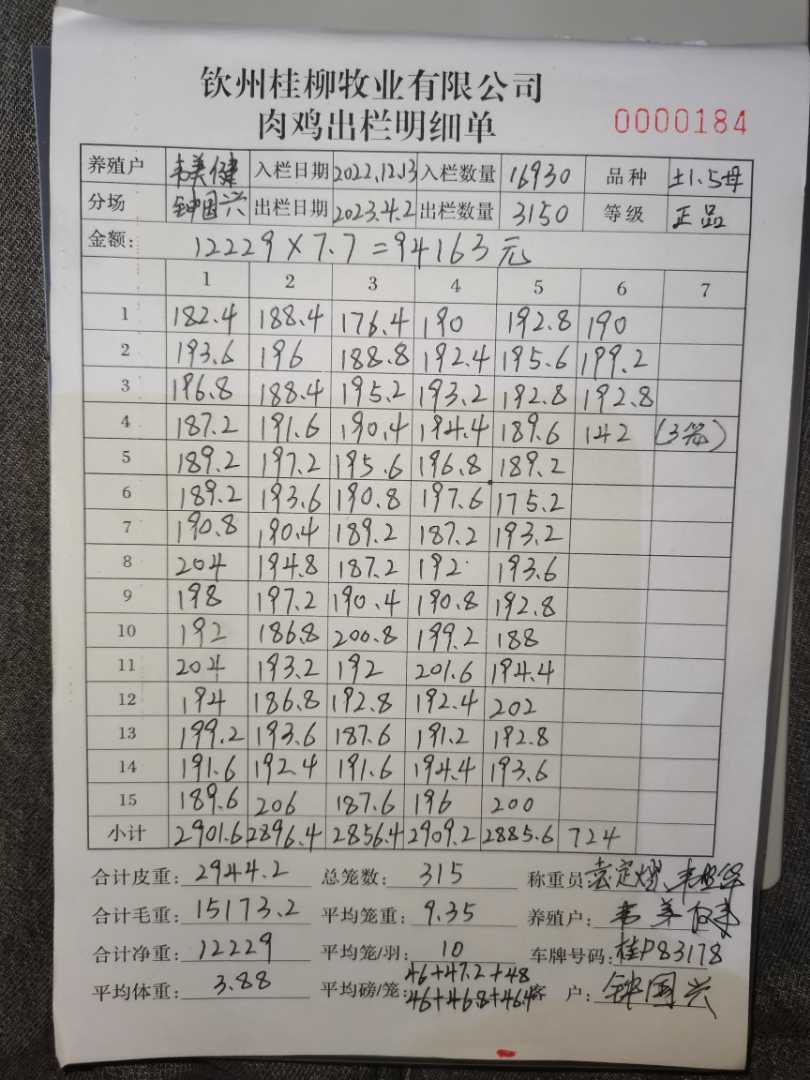 钦州桂柳牧业有限公司
肉鸡出栏明细单
0000184
养殖户 韦美健 入栏日期 2022.12.13 入栏数量 16930 品种 土1.5母
分场 钟国兴 出栏日期 2023.4.2 出栏数量 3150 等级 正品
金额: 12229×7.7=94163元
1 2 3 4 5 6 7
1 182.4 188.4 176.4 190 192.8 190
2 193.6 196 188.8 192.4 195.6 199.2
3 196.8 188.4 195.2 193.2 192.8 192.8
4 187.2 191.6 190.4 194.4 189.6 142 (3笼)
5 189.2 197.2 195.6 196.8 189.2
6 189.2 193.6 190.8 197.6 175.2
7 190.8 190.4 189.2 187.2 193.2
8 204 194.8 187.2 192 193.6
9 198 197.2 190.4 190.8 192.8
10 192 186.8 200.8 199.2 188
11 204 193.2 192 201.6 194.4
12 194 186.8 192.8 192.4 202
13 199.2 193.6 187.6 191.2 192.8
14 191.6 192.4 191.6 194.4 193.6
15 189.6 206 187.6 196 200
小计 2901.6 2896.4 2856.4 2909.2 2885.6 724
合计皮重: 2944.2 总笼数: 315 称重员
合计毛重: 15173.2 平均笼重: 9.35 养殖户: 韦美健
合计净重: 12229 平均笼/羽: 10 车牌号码: 桂P83178
46+47.2+48
平均体重: 3.88 平均磅/笼: 46+46.8+46.4 客户: 钟国兴